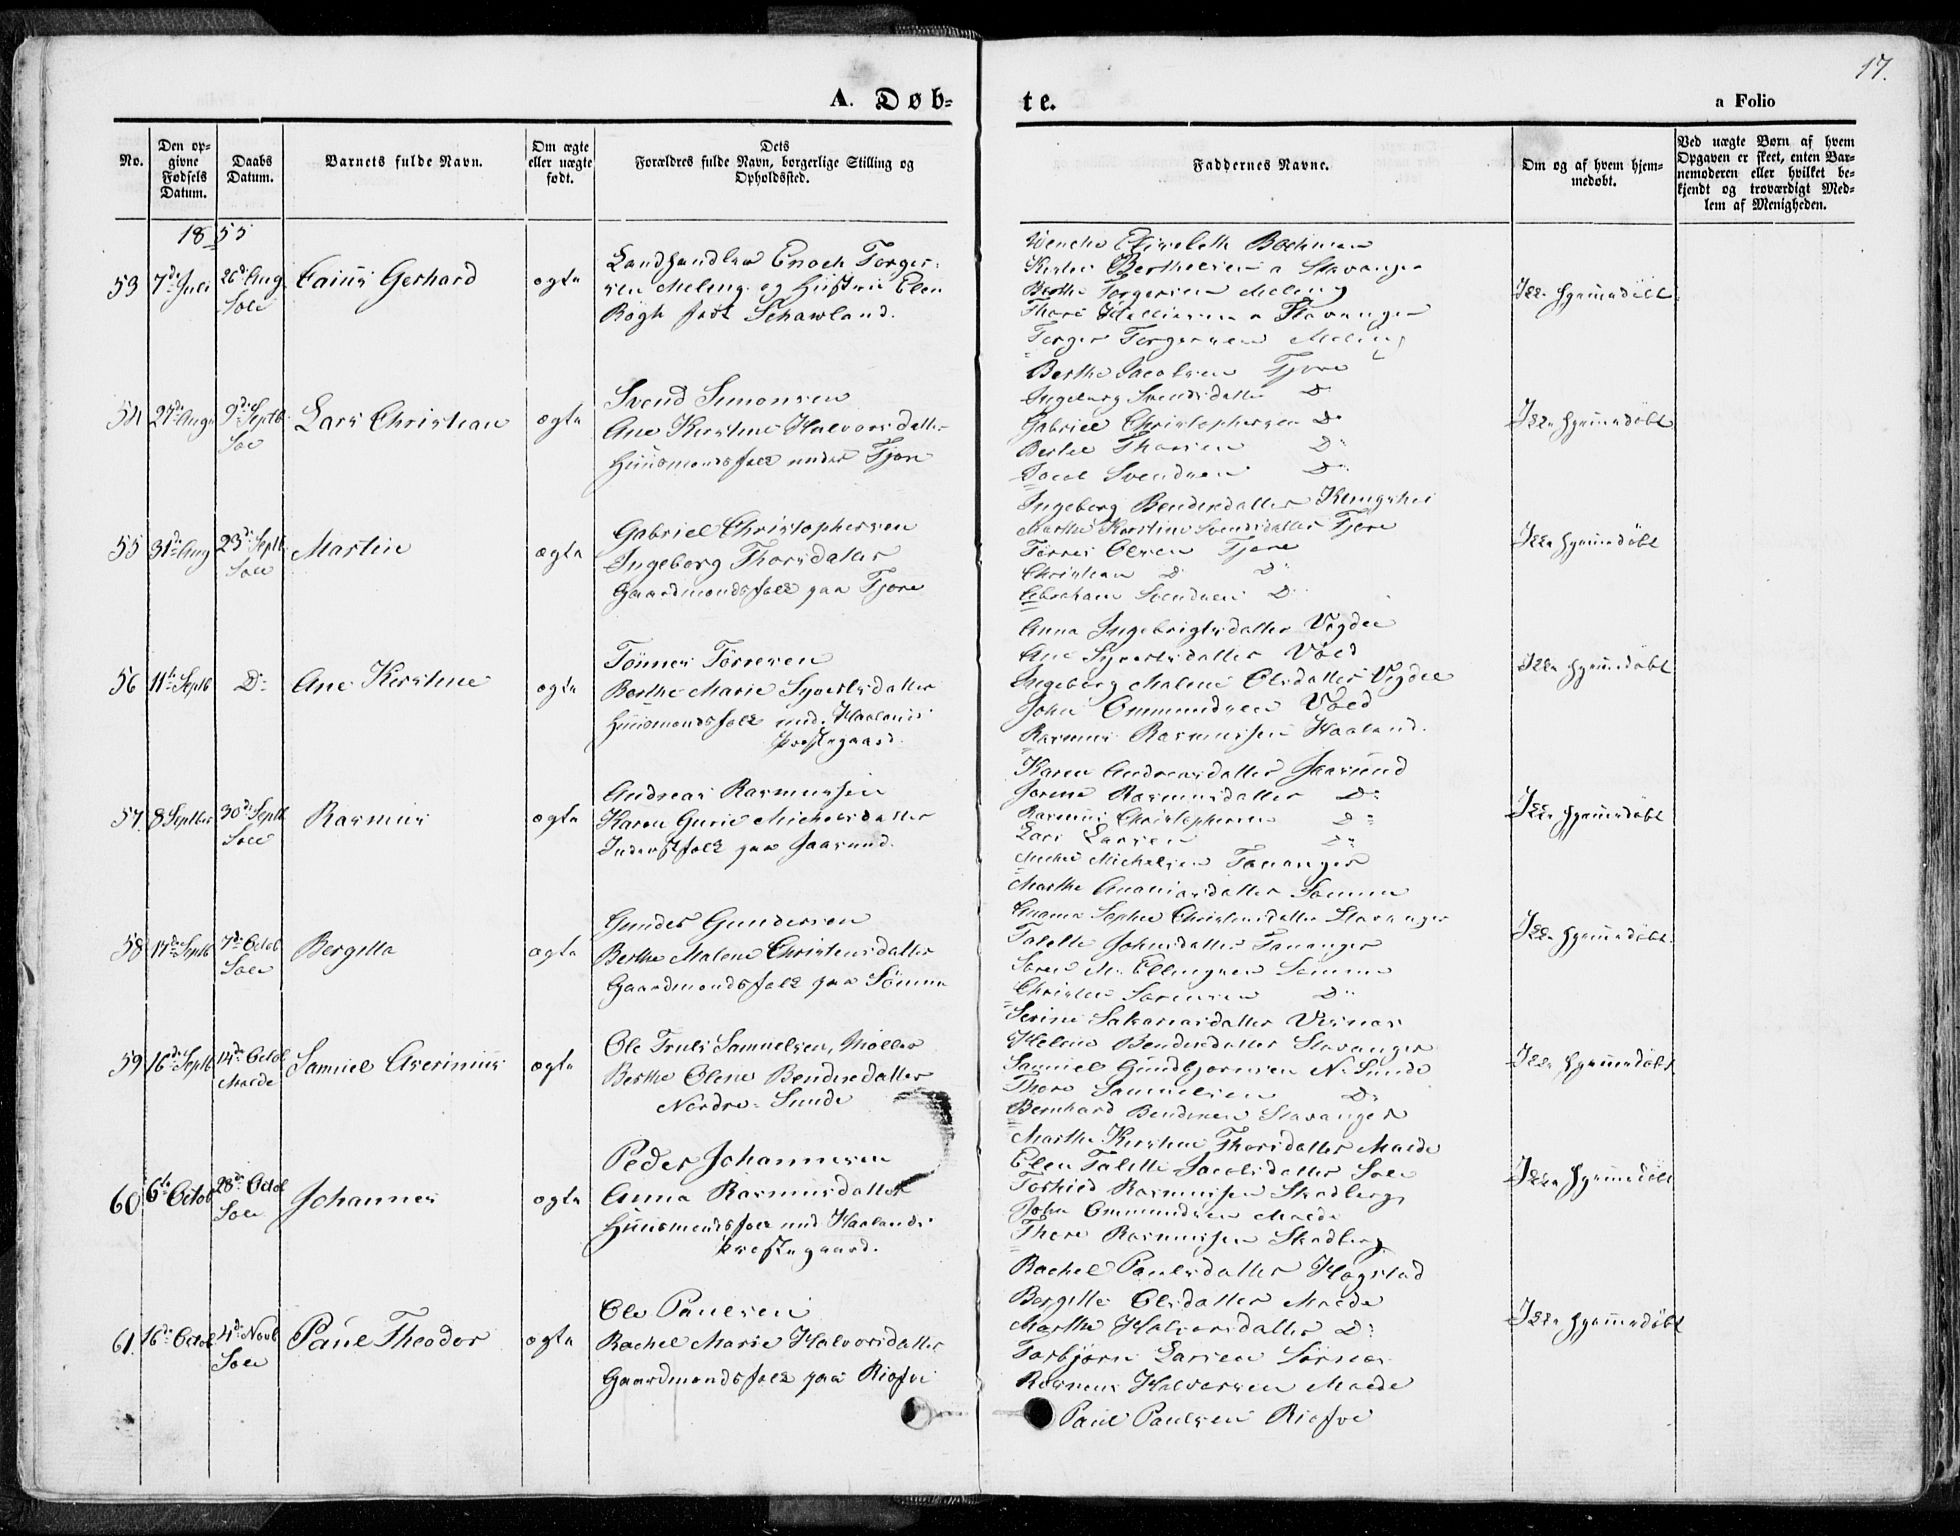 17.
A. Døb-
te.
a Folio
No.
Den op-
givne
Fødsels
Datum.
Daabs
Datum.
Barnets fulde Navn.
Om ægte
eller uægte
født.
Dets
Forældres fulde Navn, borgerlige Stilling og
Opholdssted.
Faddernes Navne.
Om og af hvem hjem-
medøbt.
Ved uægte Børn af hvem
Opgaven er skeet, enten Bar-
nemoderen eller hvilket be-
kjendt og troværdigt Med-
lem af Menigheden.
1855
53 7de Juli 26de Aug Sole Caius Gerhard ægte
Landhandler Enoch Torger-
sen Meling og Hustru Elen
født
Wenche Elisabeth Bochman
Berthelsen a Stavanger
Berthe Torgersen Meling
Thore a Stavanger
Torger Torgersen Meling
Ikke hjemmedøbt
54 27de Aug 9de Septb Sole Lars Christian ægte
Svend Simonsen
Ane Kirstine Halvorsdatter
Huusmandsfolk under Tjore
Berthe Jacobsen Tjore
Ingeborg Svendsdatter Do
Gabriel Christophersen Do
Bertel Thorsen Do
Jacob Svendsen Do
Ikke hjemmedøbt
55 31de Aug 23de Septb Sole Martin ægte
Gabriel Christophersen
Ingeborg Thorsdatter
Gaardmandsfolk paa Tjore
Ingeborg Bendixdatter
Marthe Kirstine Svendsdatter Tjore
Tørres Olsen Tjore
Christian Do Do
Abraham Svendsen Do
Ikke hjemmedøbt
56 11te Septb Do Ane Kirstine ægte
Tønnes Tørresen
Berthe Marie Syvertsdatter
Huusmandsfolk und. Haalands
Prestegaard.
Anna Ingebrigtsdatter Vigdel
Ane Syvertsdatter Vold
Ingeborg Malene Olsdatter Vigdel
John Ommundsen Vold
Rasmus Rasmussen Haaland.
Ikke hjemmedøbt
57. 8 Septber 30de Septb Sole Rasmus ægte
Andreas Rasmussen
Karen Gurie Michelsdatter
Inderstfolk paa Jaasund.
Karen Andreasdatter Jaasund
Jorene Rasmusdatter Do
Rasmus Christophersen Do
Lars Larsen Do
Michel Michelsen Tananger
Ikke hjemmedøbt
58 17de Septb 7de Octob Sole Bergitta ægte
Gunder Gundersen
Berthe Malene Christensdatter
Gaardmandsfolk paa Sömme
Marthe Ananiasdatter Sömme
Sophie Christensdatter Stavanger
Talette Johnsdatter Tananger
Søren M. Ellingsen Sømme
Christen Sørensen Do
Ikke hjemmedøbt.
59 16de Septb 14de Octob Malde Samuel Aserinius ægte
Ole Truls Samuelsen, Møller
Berthe Olene Bendixdatter
Nordre Sunde
Serine Sakariasdatter Visnes
Helene Bendixdatter Stavanger
Samuel Gundbjørnsen N. Sunde
Thore Samuelsen Do
Bernhard Bendixen Stavanger
Ikke hjemmedøbt
60 6te Octob 28de Octob Sole Johannes ægte
Peder Johannesen
Anna Rasmusdatter
Huusmandsfolk und Haalands
Prestegaard.
Marthe Kirstine Thorsdatter Malde
Elen Talette Jacobsdatter Sole
Torkild Rasmussen Skadberg
John Ommundsen Malde
Thore Rasmussen Skadberg
Ikke hjemmedøbt
61. 16de Octob 4de Novb Sole Paul Theodor ægte
Ole Paulsen
Rachel Marie Halvorsdatter
Gaardmandsfolk paa Risfve
Rachel Paulsdatter Hogstad
Bergitte Olsdatter Malde
Marthe Halvorsdatter Do
Torbjørn Larsen Sørnes
Rasmus Halvorsen Malde
Paul Paulsen Risfve
Ikke hjemmedøbt